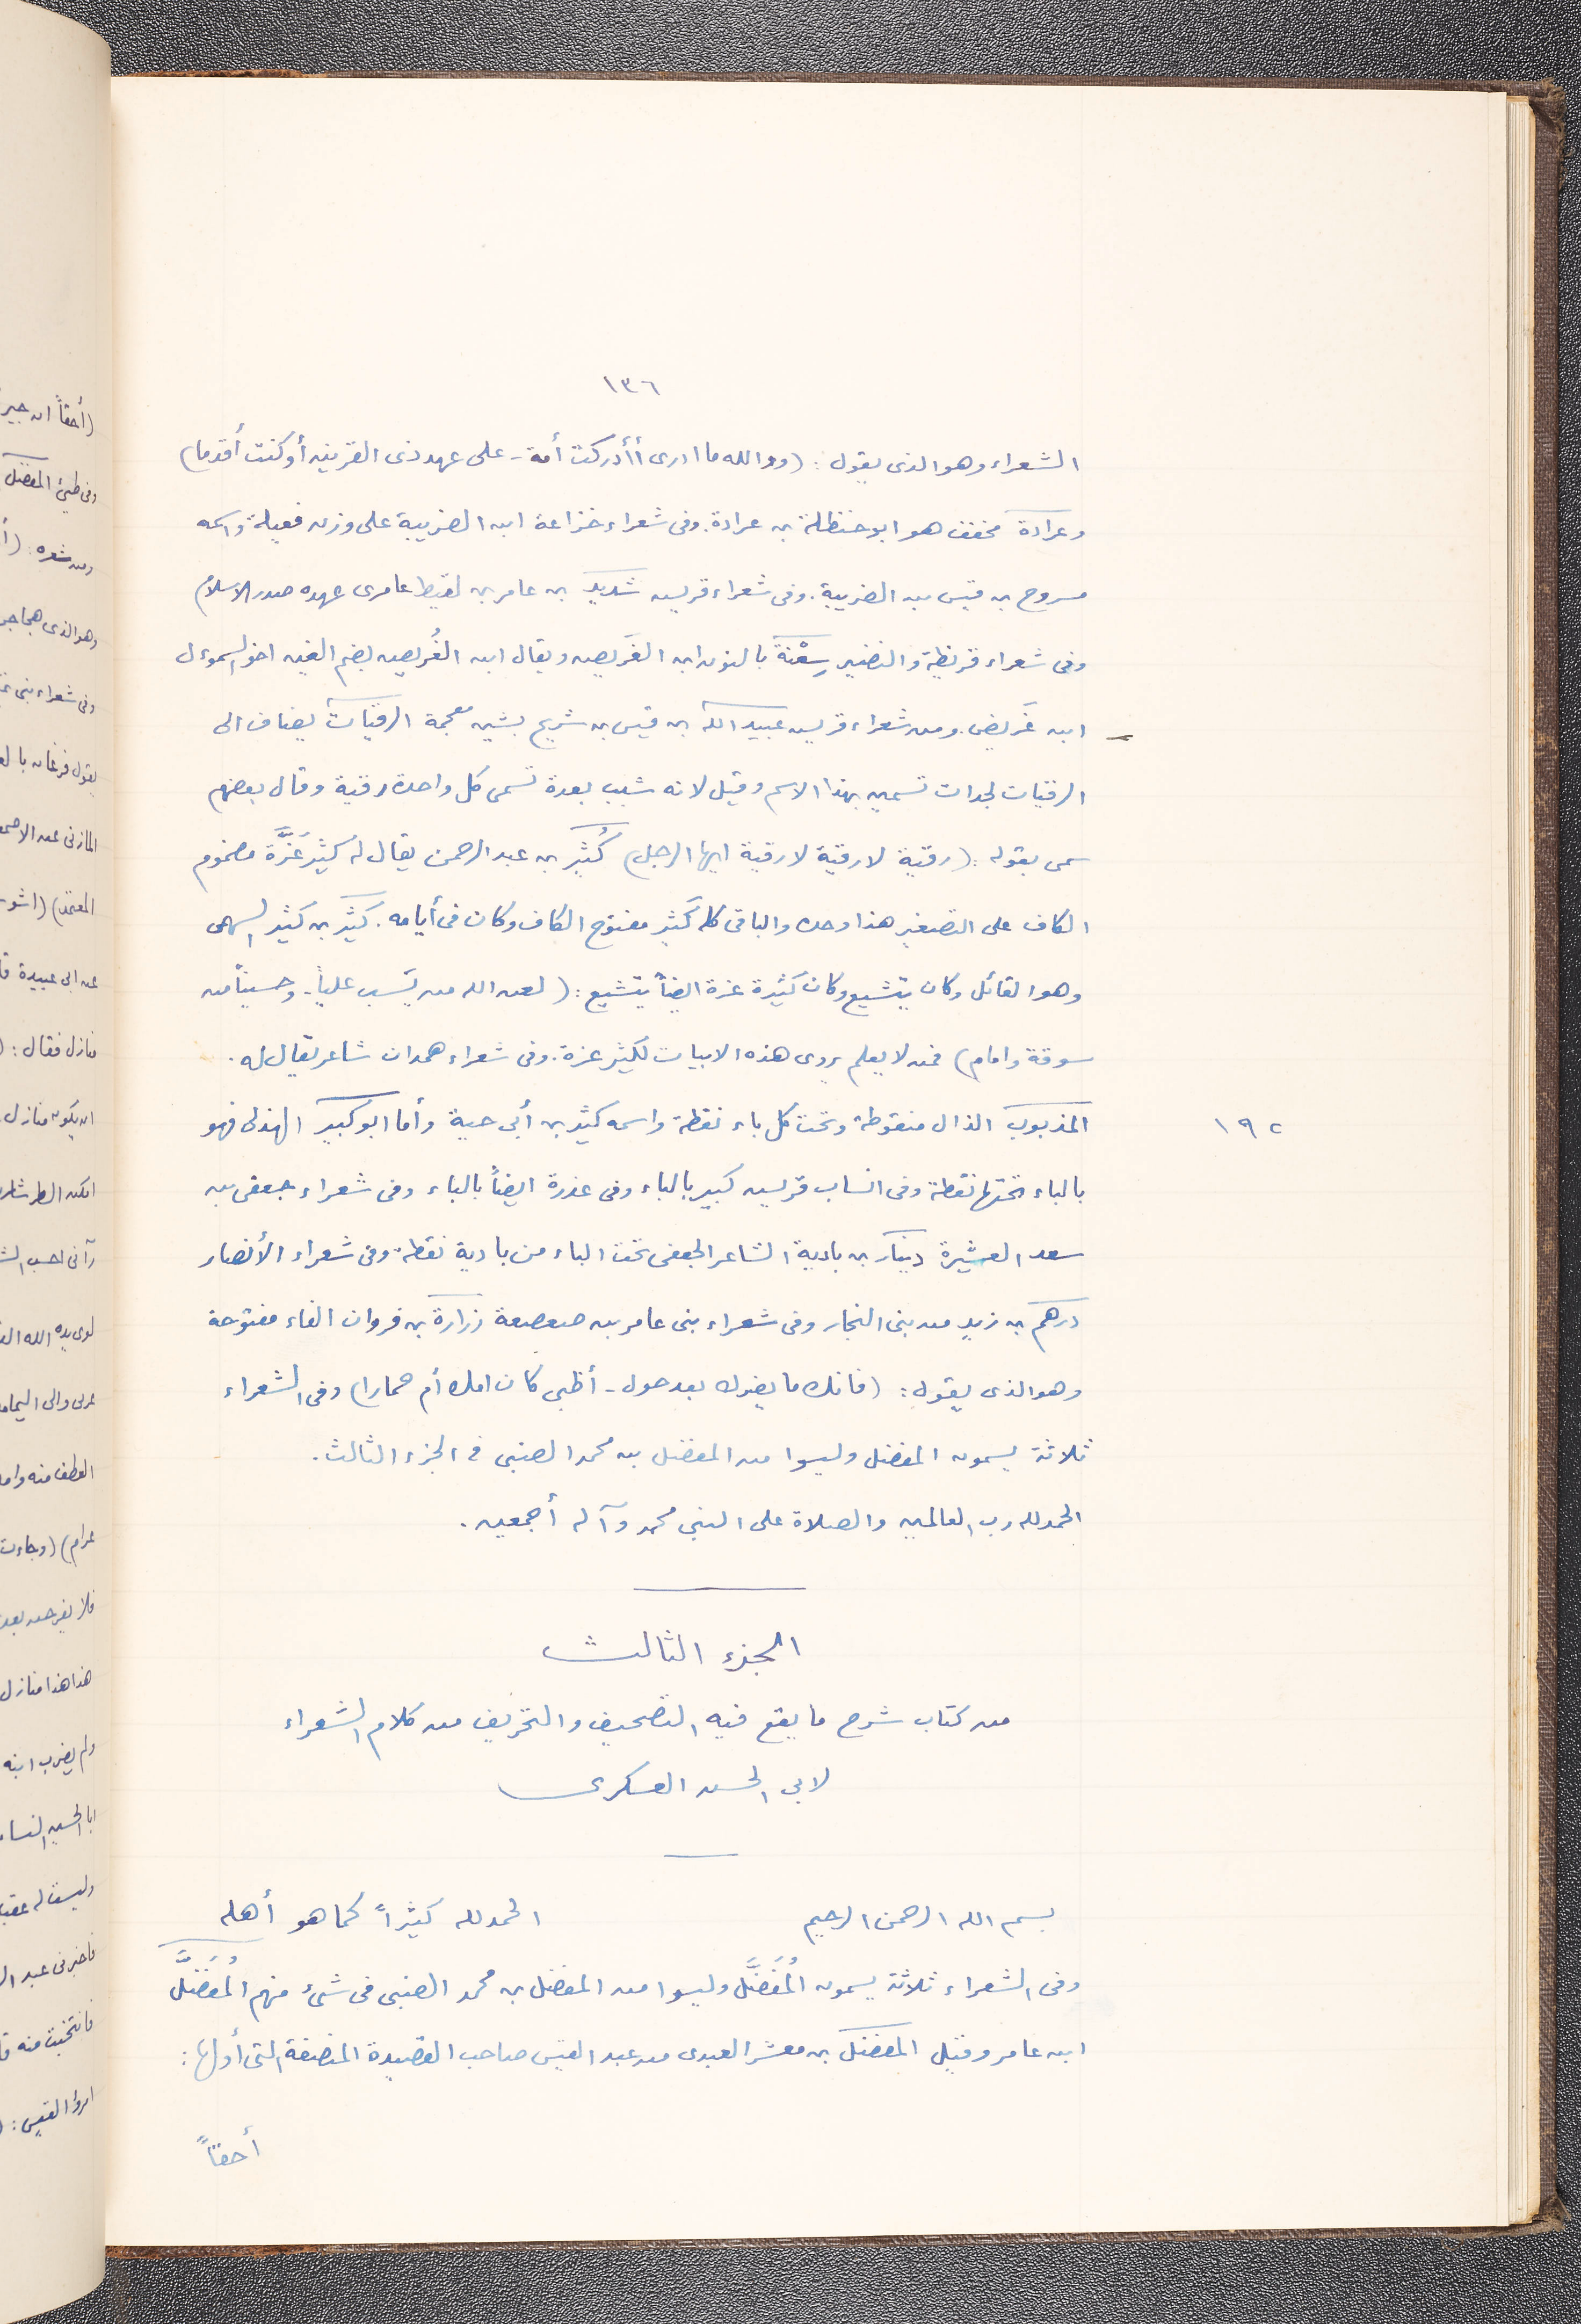 ١٣٦
الشعراء وهو الذى يقول: (ووالله ما ادرى أأدركت أمة - على عهد ذى القرنين أو كنت أقدما)
وعرادة مخفف هو ابو حنظلة بن عرادة. وفى شعراء خزاعة ابن الضريبة على وزن فعيلة واسمه
مسروح بن قيس بن الضريبة. وفى شعراء قريس شديد بن عامر بن لقيط عامرى عهده صدر الاسلام
وفى شعراء قريظة والنضير سِعْنَة بالنون ابن الغَريض ويقال ابن الغُريض بضم الغين اخو السموءل
ابن غَريض. ومن شعراء قريس عبيد الله بن قيس بن شريح بشين معجمة الرقيات يضاف الى
الرقيات لجدات تسمين بهذا الاسم وقيل لانه شبب بعدة تسمى كل واحدة رقية وقال بعضهم
سمى بقوله: (رقية لا رقية لا رقية ايها الرجل) كُثَيِّر بن عبد الرحمن يقال له كثيّر عَزَّة مضموم
الكاف على التصغير هذا وحده والباقى كله كَثير مفتوح الكاف وكان فى أيامه. كَثير بن كثير السهمى
وهو القائل وكان يتشيع وكان كثيرة عزة ايضاً يتشيع: (لعن الله من يَسب علياً - وحسيناً من
سوقة وامام) فمن لا يعلم يروى هذه الابيات لكثير عزة. وفى شعراء همدان شاعر يقال له.
المذبوب الذال منقوطة وتحت كل باء نقطة واسمه كثير بن أبى حية وأما ابو كبير الهذلى فهو
١٩٢
بالباء تحتها نقطة وفى انساب قريس كبير بالباء وفى عذرة ايضاً بالباء وفى شعراء جعفى بن
سعد العشيرة دينار بن بادية الشاعر الجعفى تحت الباء من بادية نقطة وفى شعراء الأنصار
درهم بن زيد من بنى النجار وفى شعراء بنى عامر بن صعصعة زرارة بن فروان الفاء مفتوحة
وهو الذى يقول: (فانك ما يضرك بعد حول - أظبى كان امك أم حمارا) وفى الشعراء
ثلاثة يسمون المفضل وليسوا من المفضل بن محمد الضبى فى الجزء الثالث.
الحمد لله رب العالمين والصلاة على النبى محمد وآله أجمعين.
الجزء الثالث
من كتاب شرح ما يقع فيه التصحيف والتحريف من كلام الشعراء
لابى الحسن العسكرى
بسم الله الرحمن الرحيم الحمد لله كثيراً كما هو أهله
وفى الشعراء ثلاثة يسمون المُفَضَّل وليسوا من المفضل بن محمد الضبى فى شئ منهم المُفَضَّل
ابن عامر وقيل المفضل بن معشر العبدى من عبد القيس صاحب القصيدة المنصفة التى أولها:
أحقاً